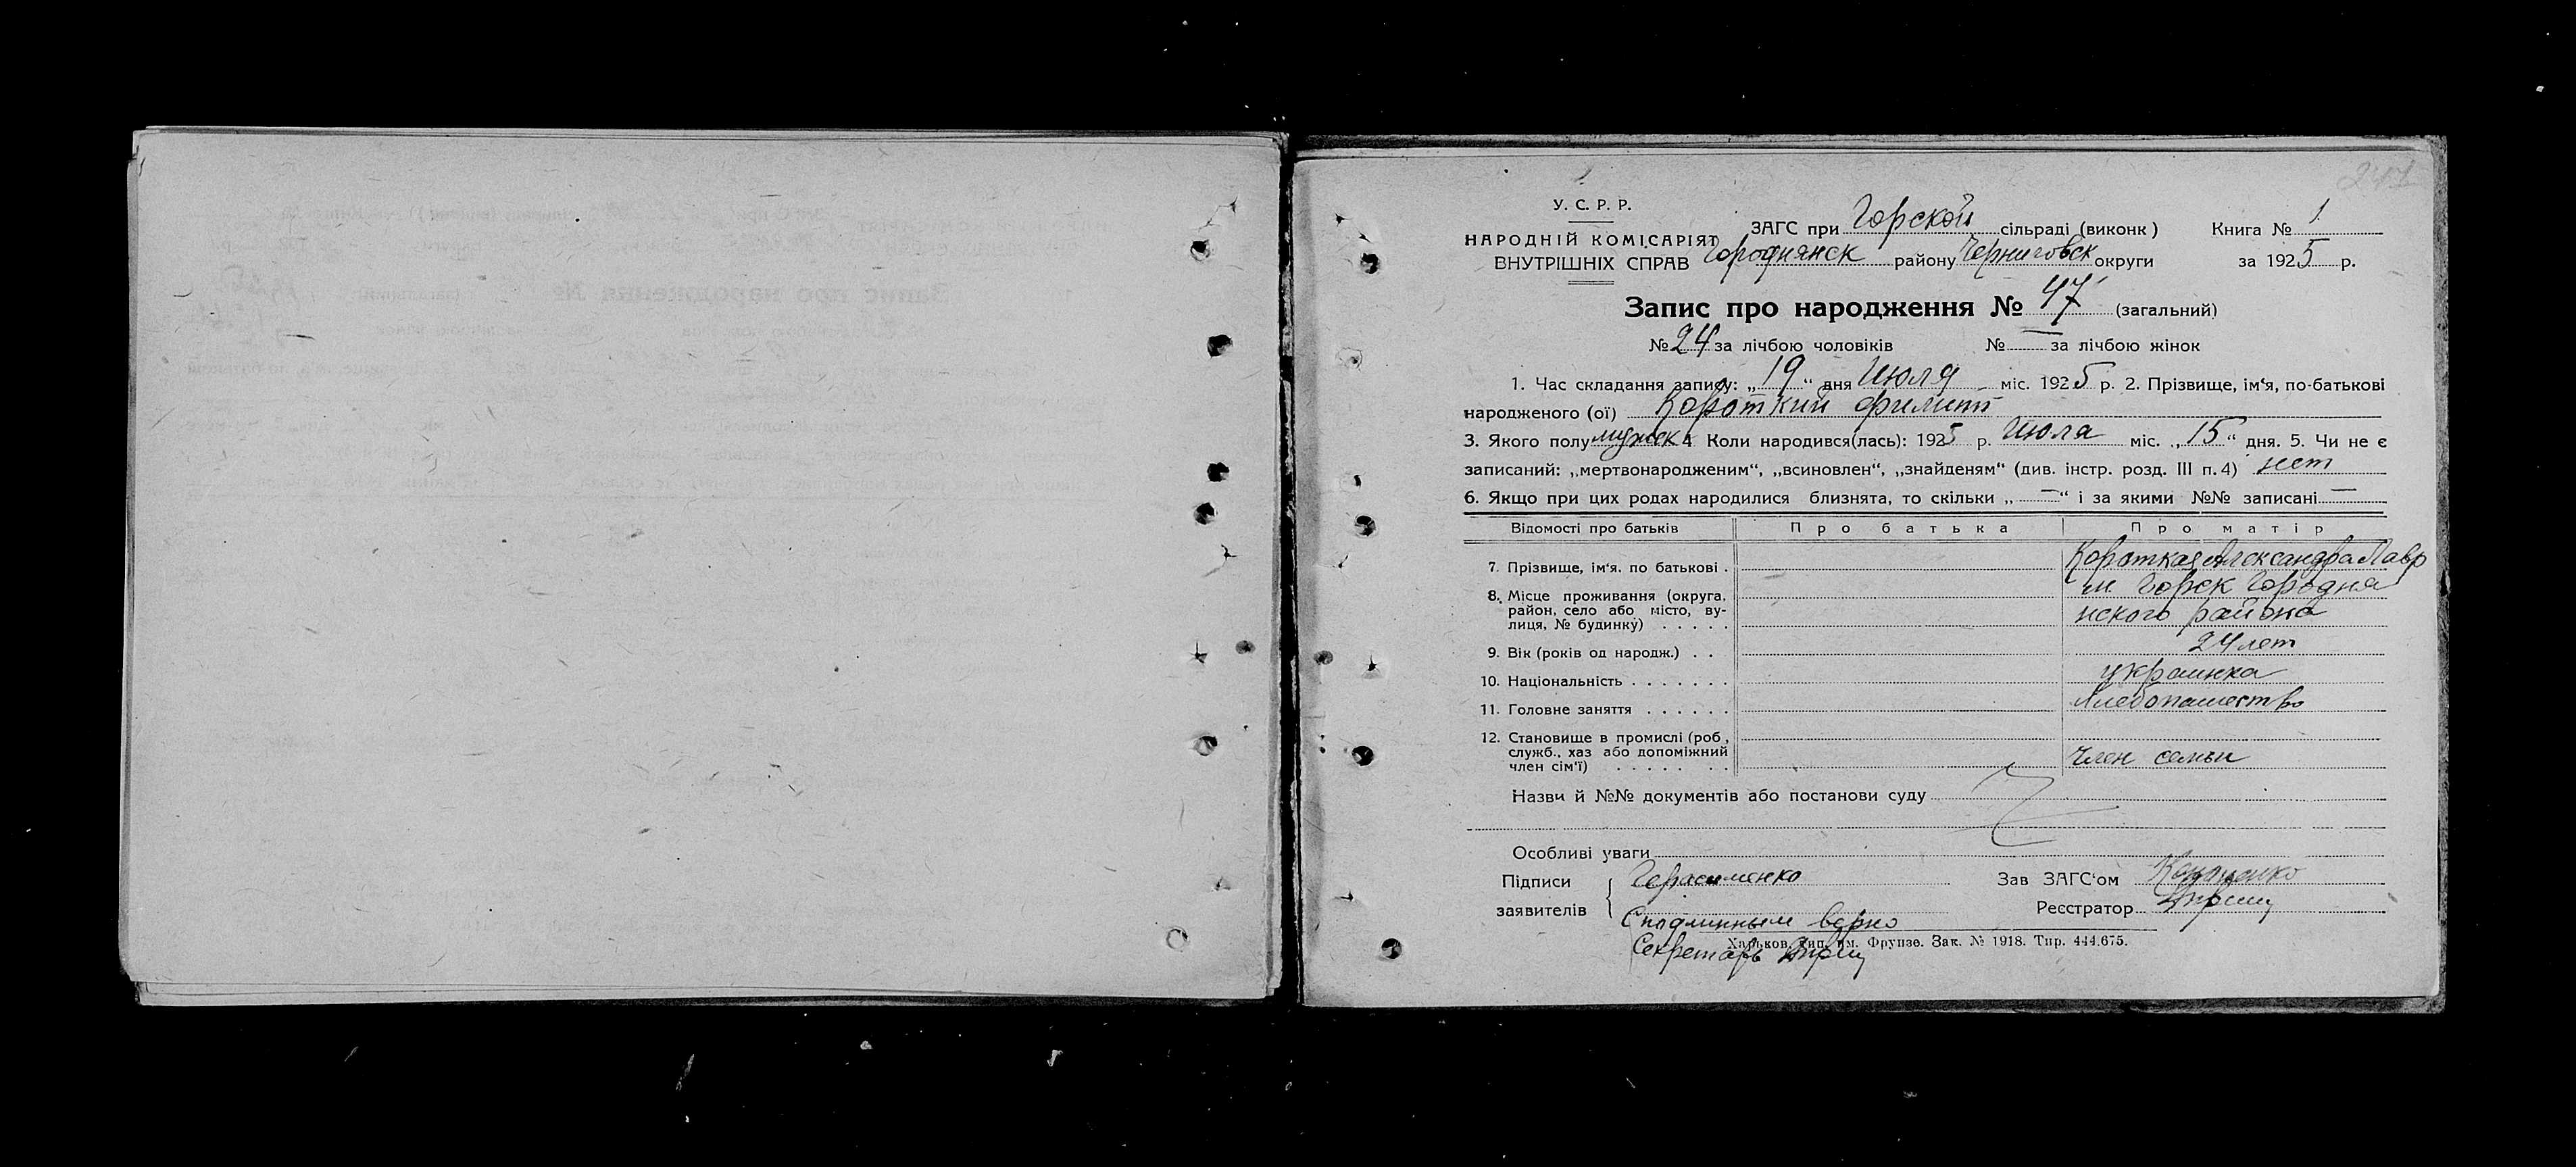 247
У. С. Р. Р.
НАРОДНІЙ КОМІСАРІЯТ
ВНУТРІШНІХ СПРАВ
ЗАГС при Горской сільраді (виконк) Книга № 1
Городнянск району Черниговск округи за 1925 р.
Запис про народження № 47 (загальний)
№ 24 за лічбою чоловіків № — за лічбою жінок
1. Час складання запису: „19“ дня Июля міс. 1925 р. 2. Прізвище, ім‘я, по-батькові
народженого (ої) Короткий Филипп
3. Якого полу мужск 4 Коли народився(лась): 1925 р. Июля міс. „15“ дня. 5. Чи не є
записаний: „мертвонародженим“, „всиновлен“, „знайденям“ (див. інстр. розд. III п. 4) нет
6. Якщо при цих родах народилися близнята, то скільки „—“ і за якими №№ записані —
Відомості про батьків Про батька Про матір
7. Прізвище, ім‘я. по батькові . Короткая Александра Лавр
8. Місце проживання (округа, м. Горск Городня
район, село або місто, ву- нского района
лиця, № будинку) . . . . .
9. Вік (років од народж.) . . 24 лет
10. Національність . . . . . . . украинка
11. Головне заняття . . . . . . Хлебопашество
12. Становище в промислі (роб.,
служб., хаз або допоміжний
член сім‘ї) . . . . . . . Член семьи
Назви й №№ документів або постанови суду
Особливі уваги
Підписи Герасименко Зав ЗАГС‘ом
заявителів Реєстратор
С подлинным верно
Харьков, тип. им. Фрунзе. Зак. № 1918. Тир. 444.675.
Секретарь